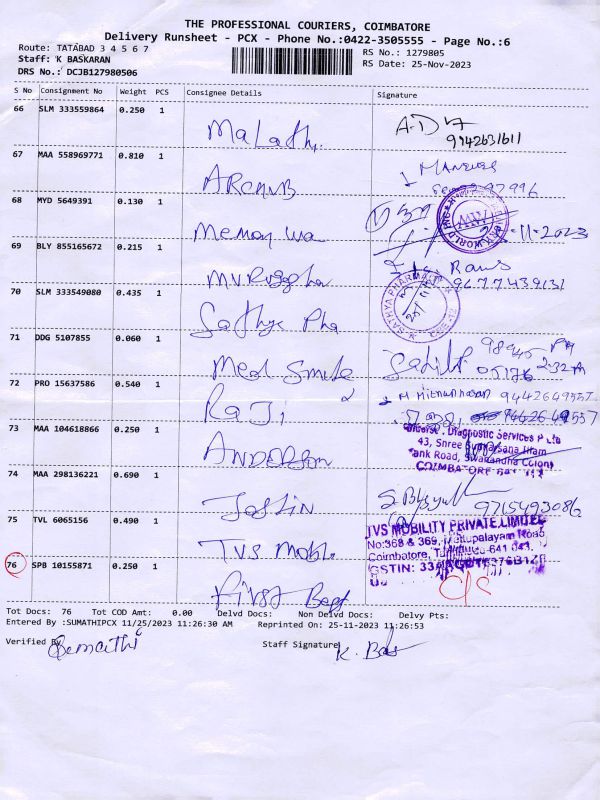 THE PROFESSIONAL COURIERS, COIMBATORE
Delivery Runsheet - PCX - Phone No.:0422-3505555 - Page No.:6
Route: TATABAD 3 4 5 6 7
RS No.: 1279805
Staff: K BASKARAN
RS Date: 25-Nov-2023
DRS No.: DCJB127980506
S No Consignment No Weight PCS Consignee Details Signature
66 SLM 333559864 0.250 1
Malathi
9942631611
67 MAA 558969771 0.810 1
68 MYD 5649391 0.130 1
Memory wa
-11-2023
69 BLY 855165672 0.215 1
9677439131
70 SLM 333549080 0.435 1
SATHYA PHARMA
Sathya Pha
71 DDG 5107855 0.060 1
Med Smile
98945
05176
2:32 PM
72 PRO 15637586 0.540 1
Raji
9442649557
9442649557
73 MAA 104618866 0.250 1
ANDERSON
Diagnostic Services P Ltd
43, Shree
COIMBATORE
74 MAA 298136221 0.690 1
Jostin
9715493086
75 TVL 6065156 0.490 1
TVS Mobl
TVS MOBILITY PRIVATE LIMITED
No:368 & 369, Mettupalayam Road
Coimbatore, Tamilnadu-641 043.
GSTIN:
76 SPB 10155871 0.250 1
First
C/S
Tot Docs: 76 Tot COD Amt: 0.00 Delvd Docs: Non Delvd Docs: Delvy Pts:
Entered By :SUMATHIPCX 11/25/2023 11:26:30 AM Reprinted On: 25-11-2023 11:26:53
Verified By
Staff Signature
K. Bas